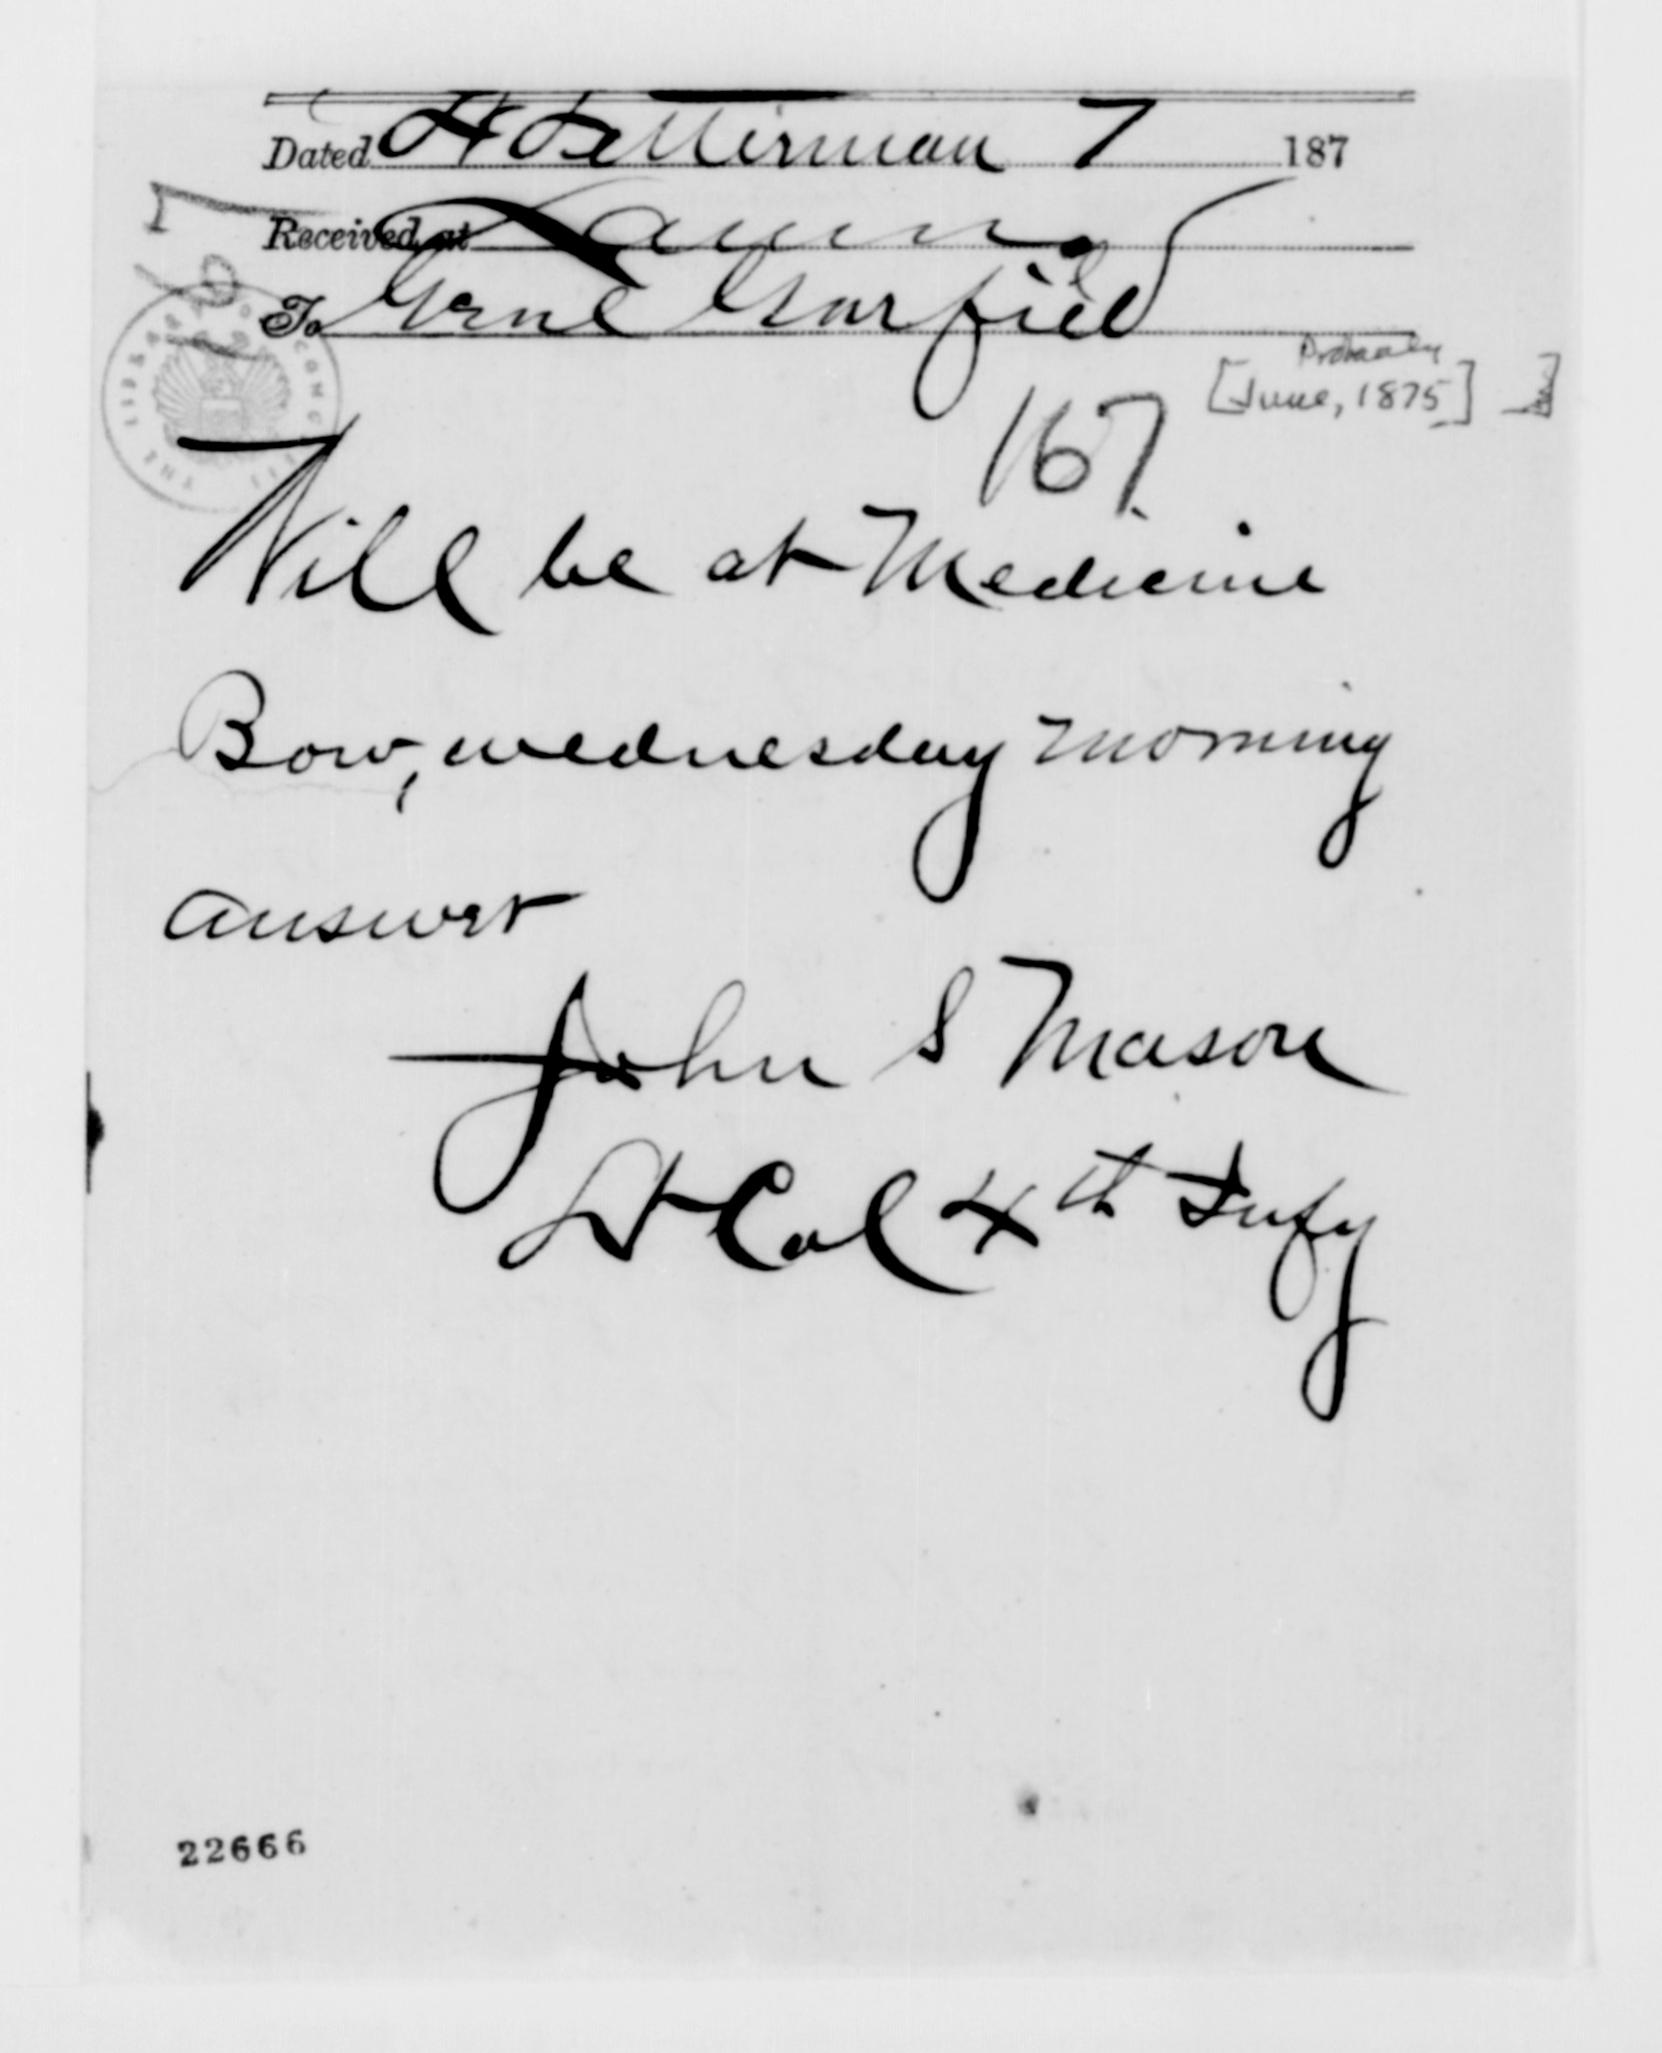 Dated Ft Fetterman 7 187
Received at
To Genl Garfield
Probably
[June, 1875]
167
Will be at Medicine
Bow, wednesday morning
answer
John S Mason
Lt Col 4th Infy
22666